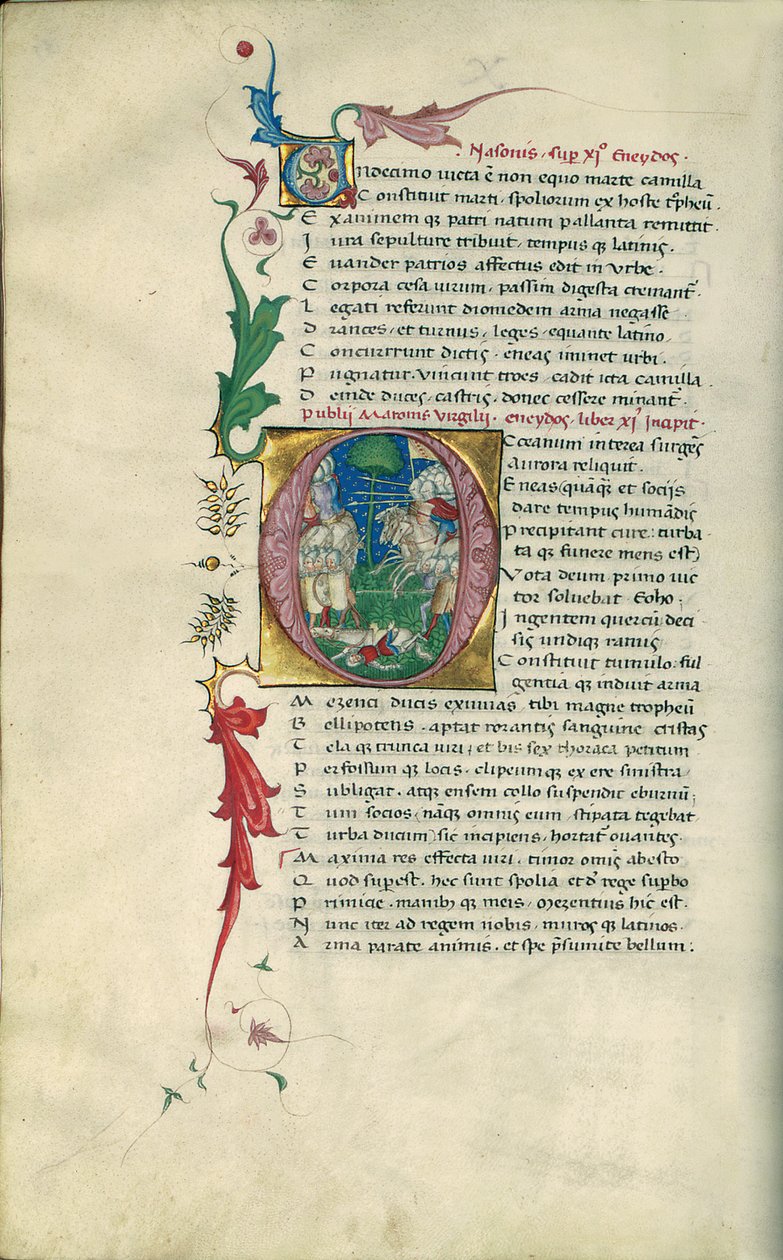 Nasonis, sup̱ xi° Eneydos.
Undecimo uicta ē non equo marte camilla
Constituit marti, spoliorum ex hoste tͥpheū.
Exanimem qꝫ patri natum pallanta remittit.
Iura sepulture tribuit, tempus qꝫ latinis.
Euander patrios affectus edit in Vrbe.
Corpora cesa uirum, passim digesta cremant̄.
Legati referunt diomedem arma negassē
Drances, et turnus, leges, equante latino,
Concurrrunt dictis. eneas iminet urbi.
Pugnatur. Vincunt troes, cadit icta camilla.
Deinde duces, castris, donec cessere minant̄.
Publij Maronis Virgilij. eneydos, liber xi° Incipit.
Oceanum interea surgēs
Aurora reliquit.
Eneas (quāqꝫ et socijs
dare tempus humādis
Precipitant cure: turba
ta qꝫ funere mens est)
Vota deum primo uic
tor soluebat Eoho;
Ingentem quercū deci
sis undiqꝫ ramis
Constituit tumulo: ful
gentia qꝫ induit arma
Mezenci ducis exuuias, tibi magne tropheū
Bellipotens. aptat rorantis sanguine cristas
Tela qꝫ trunca uiri; et bis sex thoraca petitum
Perfossum qꝫ locis. clipeumqꝫ ex ere sinistra
Subligat. atqꝫ ensem collo suspendit eburnū;
Tum socios (nāqꝫ omnis eum, stipata tegebat
Turba ducum) sic incipiens, hortat̄ ouantes.
Maxima res effecta uiri, timor omīs abesto
Quod sup̱est. hec sunt spolia et dͤ rege sup̱bo
Primicie. manibꝫ qꝫ meis, Mezentius hic est.
Nunc iter ad regem nobis, muros qꝫ latinos.
Arma parate animis. et spe p̄sumite bellum: